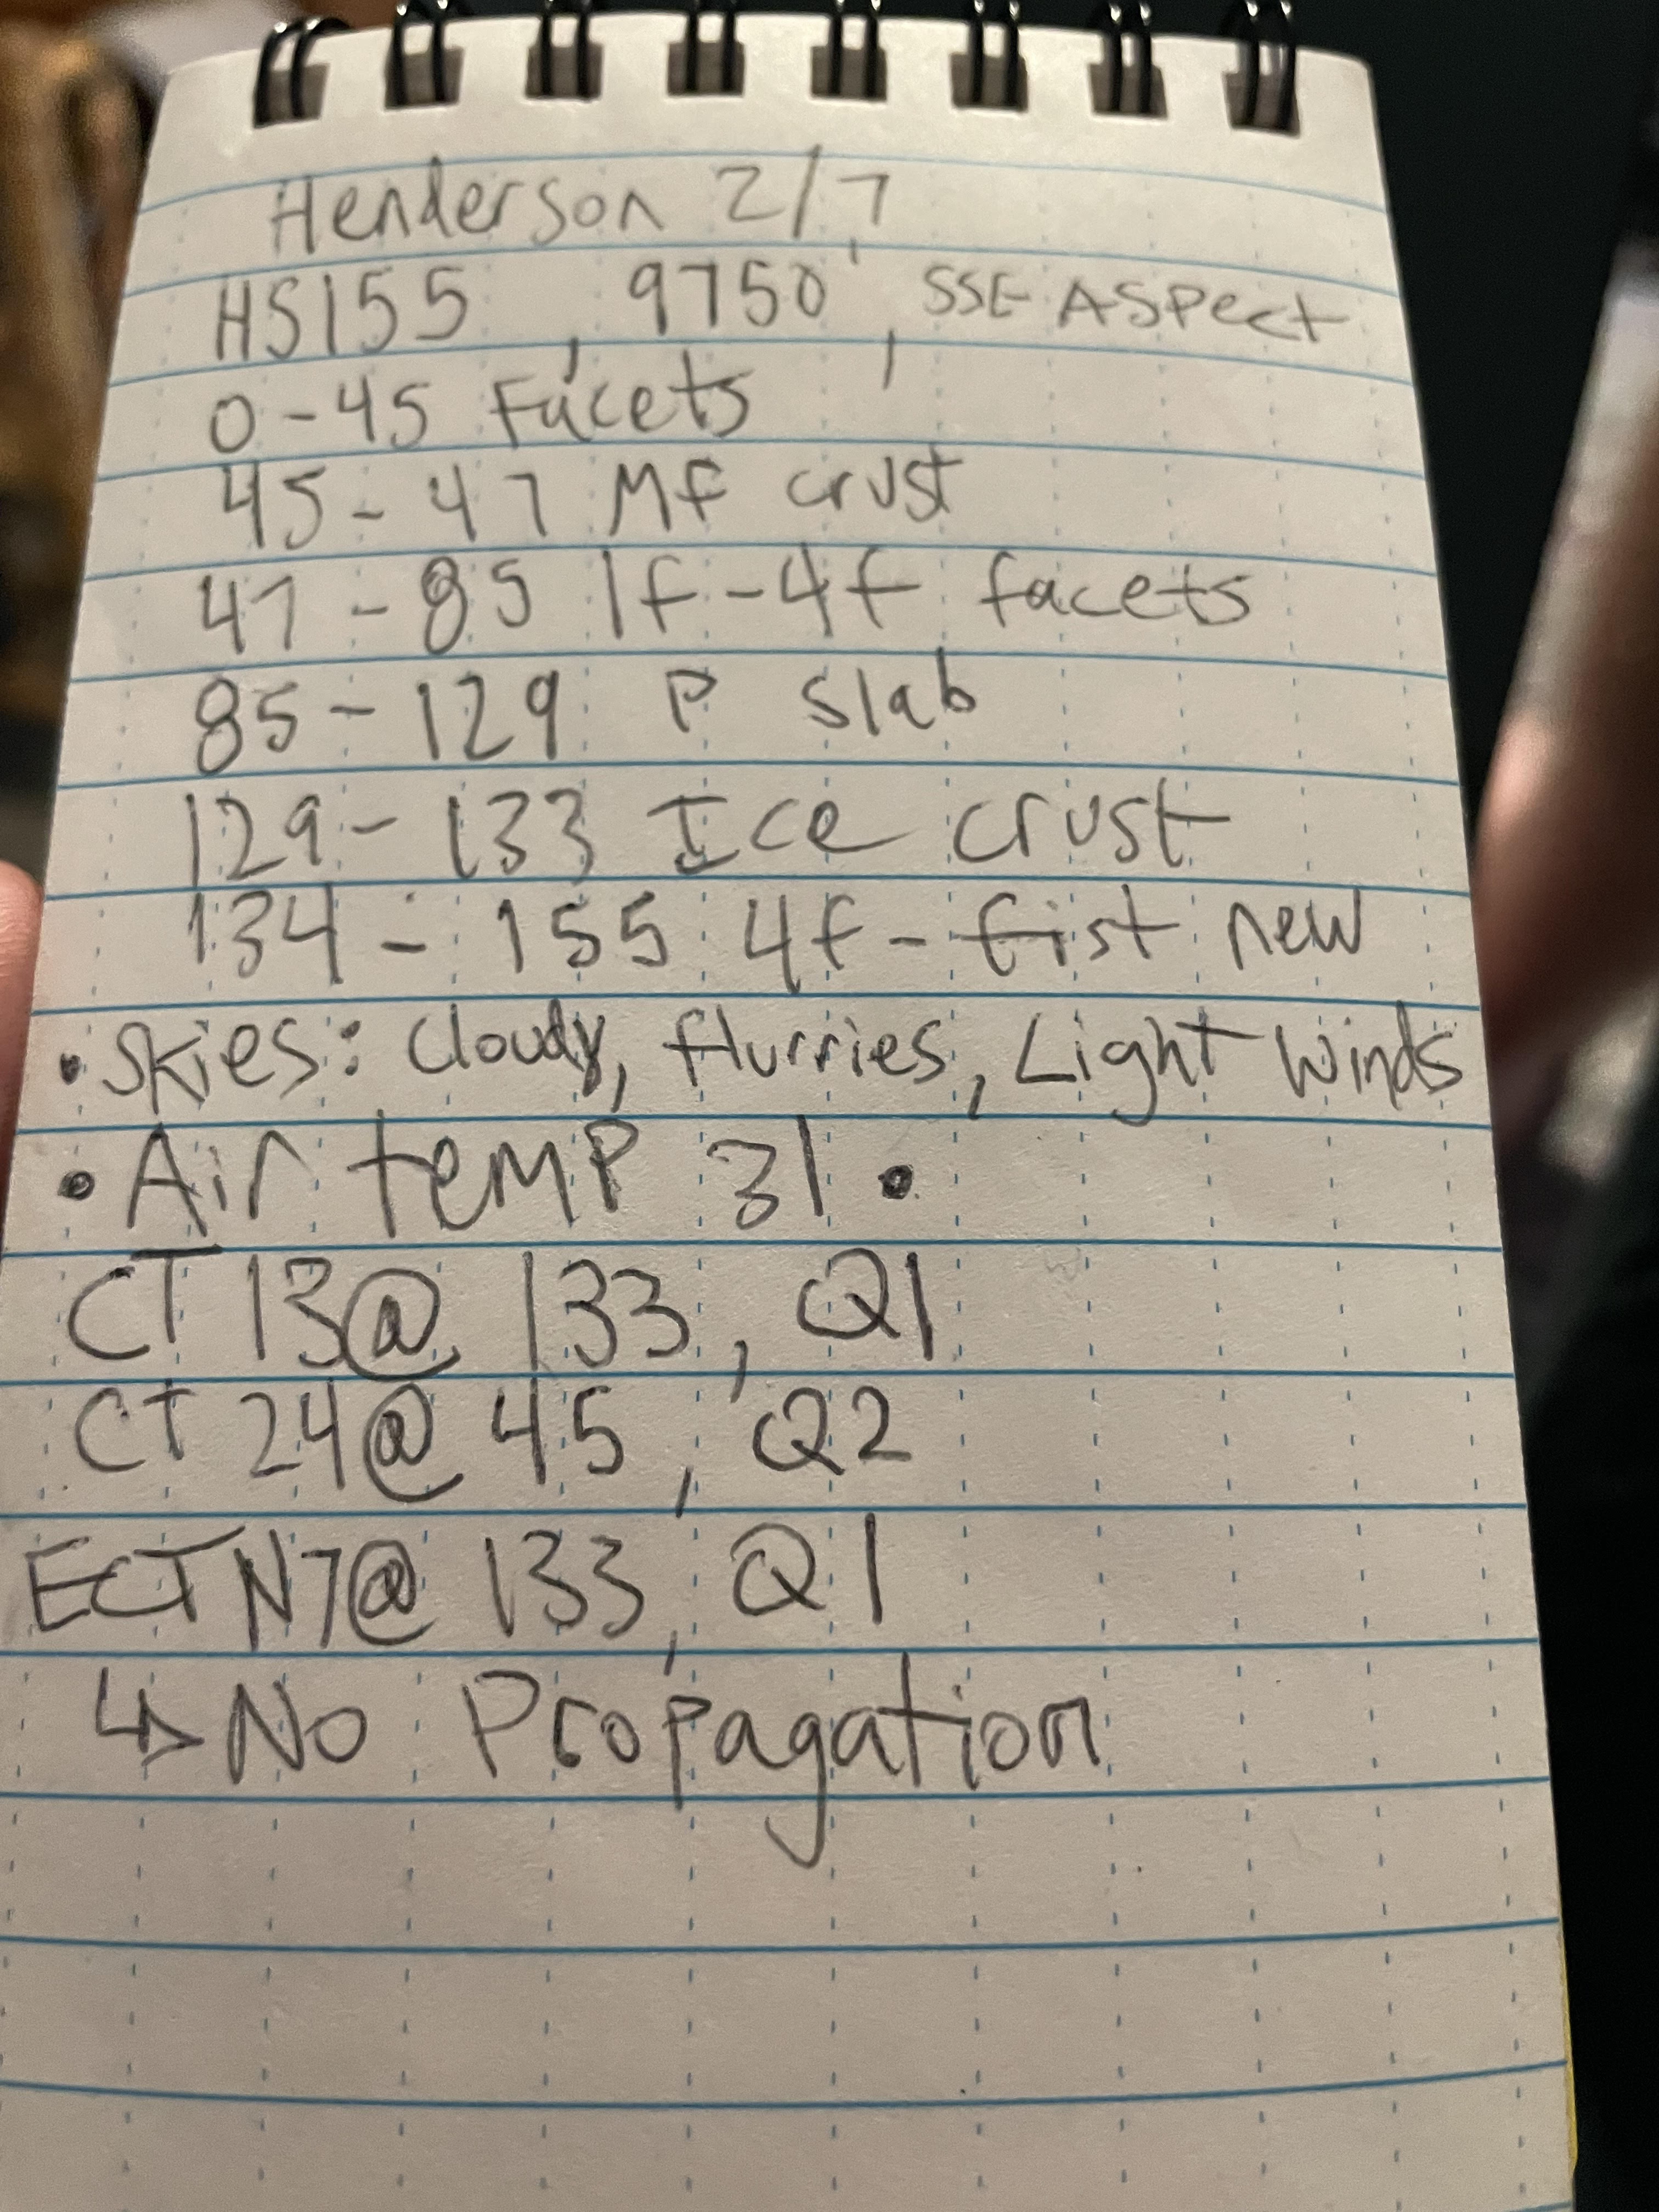 Henderson 2/7
HS155, 9750', SSE Aspect
0-45 Facets
45-47 MF crust
47-85 1f-4f facets
85-129 P slab
129-133 Ice crust
134-155 4f-fist new
• Skies: Cloudy, flurries, Light winds
• Air temp 31 •
CT 13@ 133, Q1
CT 24@ 45, Q2
ECTN7@ 133, Q1
↳ No Propagation